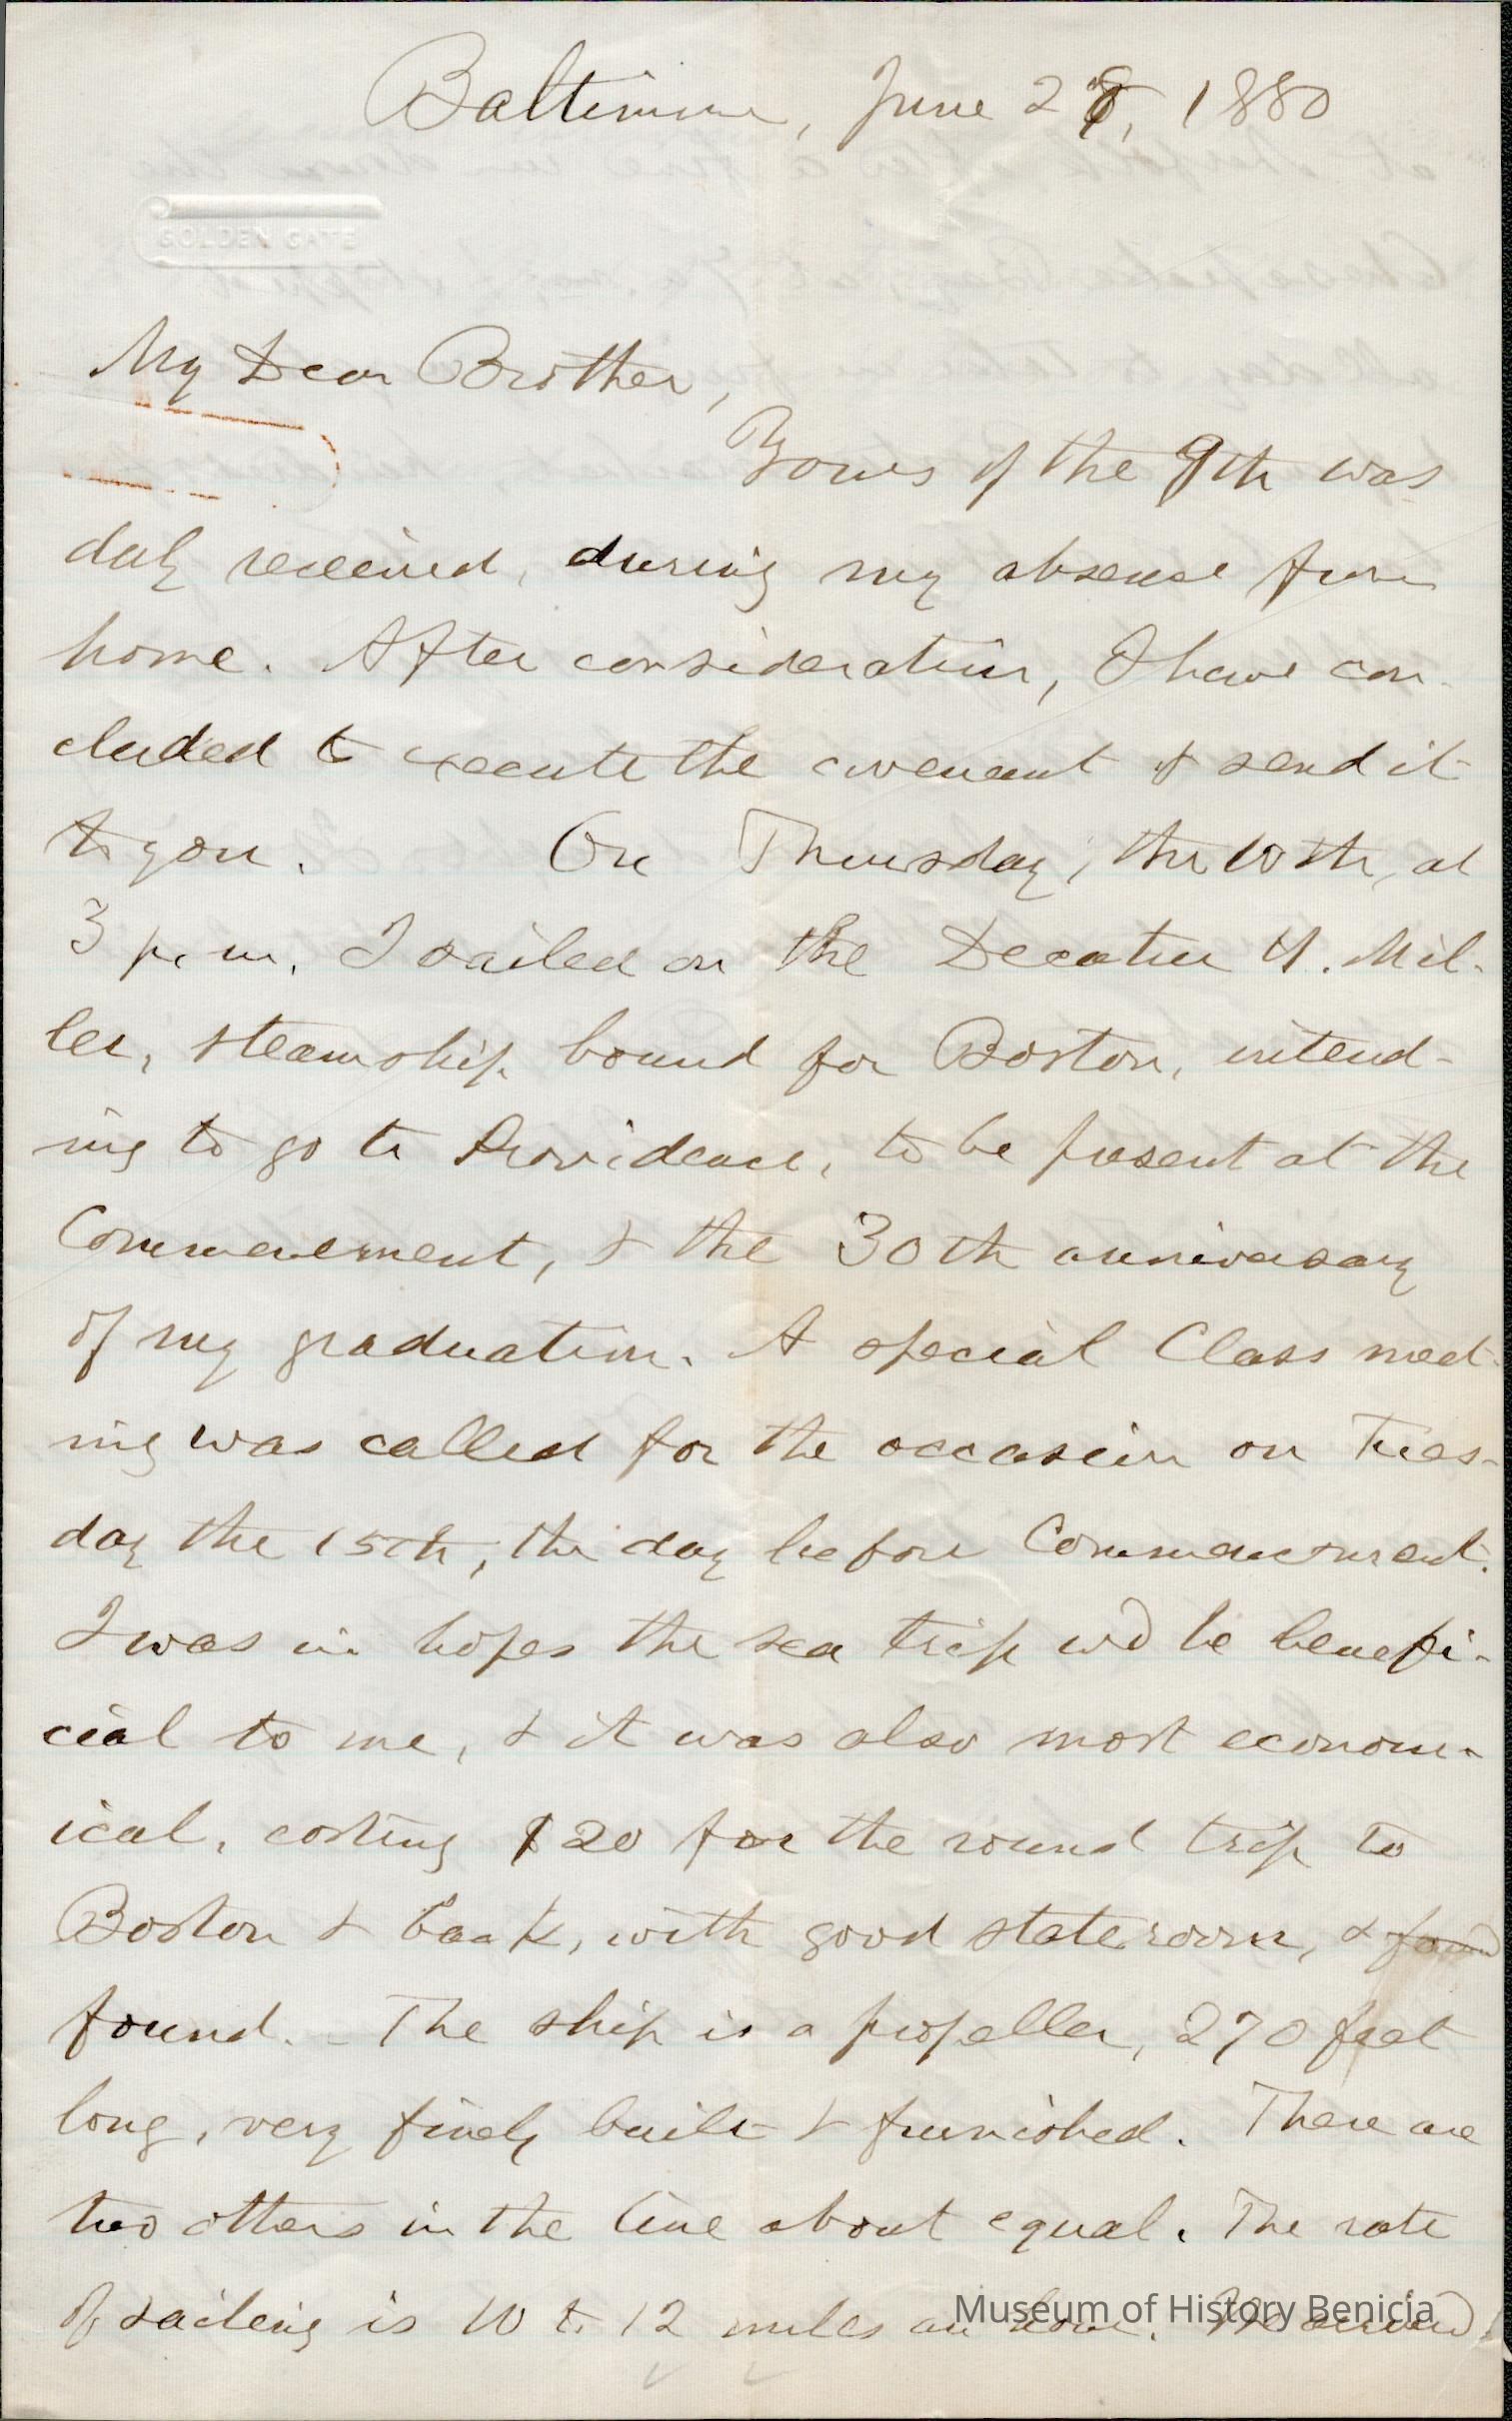 Baltimore, June 28, 1880
GOLDEN GATE
My Dear Brother,
Yours of the 9th was
duly received, during my absense from
home. After consideration, I have con-
cluded to execute the covenant & send it
to you. On Thursday, the 10th, at
3 p. m. I sailed on the Decatur H. Mil-
ler, steamship bound for Boston, intend-
ing to go to Providence, to be present at the
Commencement, & the 30th anniversary
of my graduation. A special Class meet-
ing was called for the occasion on Tues-
day the 15th, the day before Commencement.
I was in hopes the sea trip wd be benefi-
cial to me, & it was also most econom-
ical, costing $20 for the round trip to
Boston & back, with good stateroom, & found
found. - The ship is a propeller, 270 feet
long, very finely built & furnished. There are
two others in the line about equal. The rate
of sailing is 10 to 12 miles an hour. We arrived
Museum of History Benicia